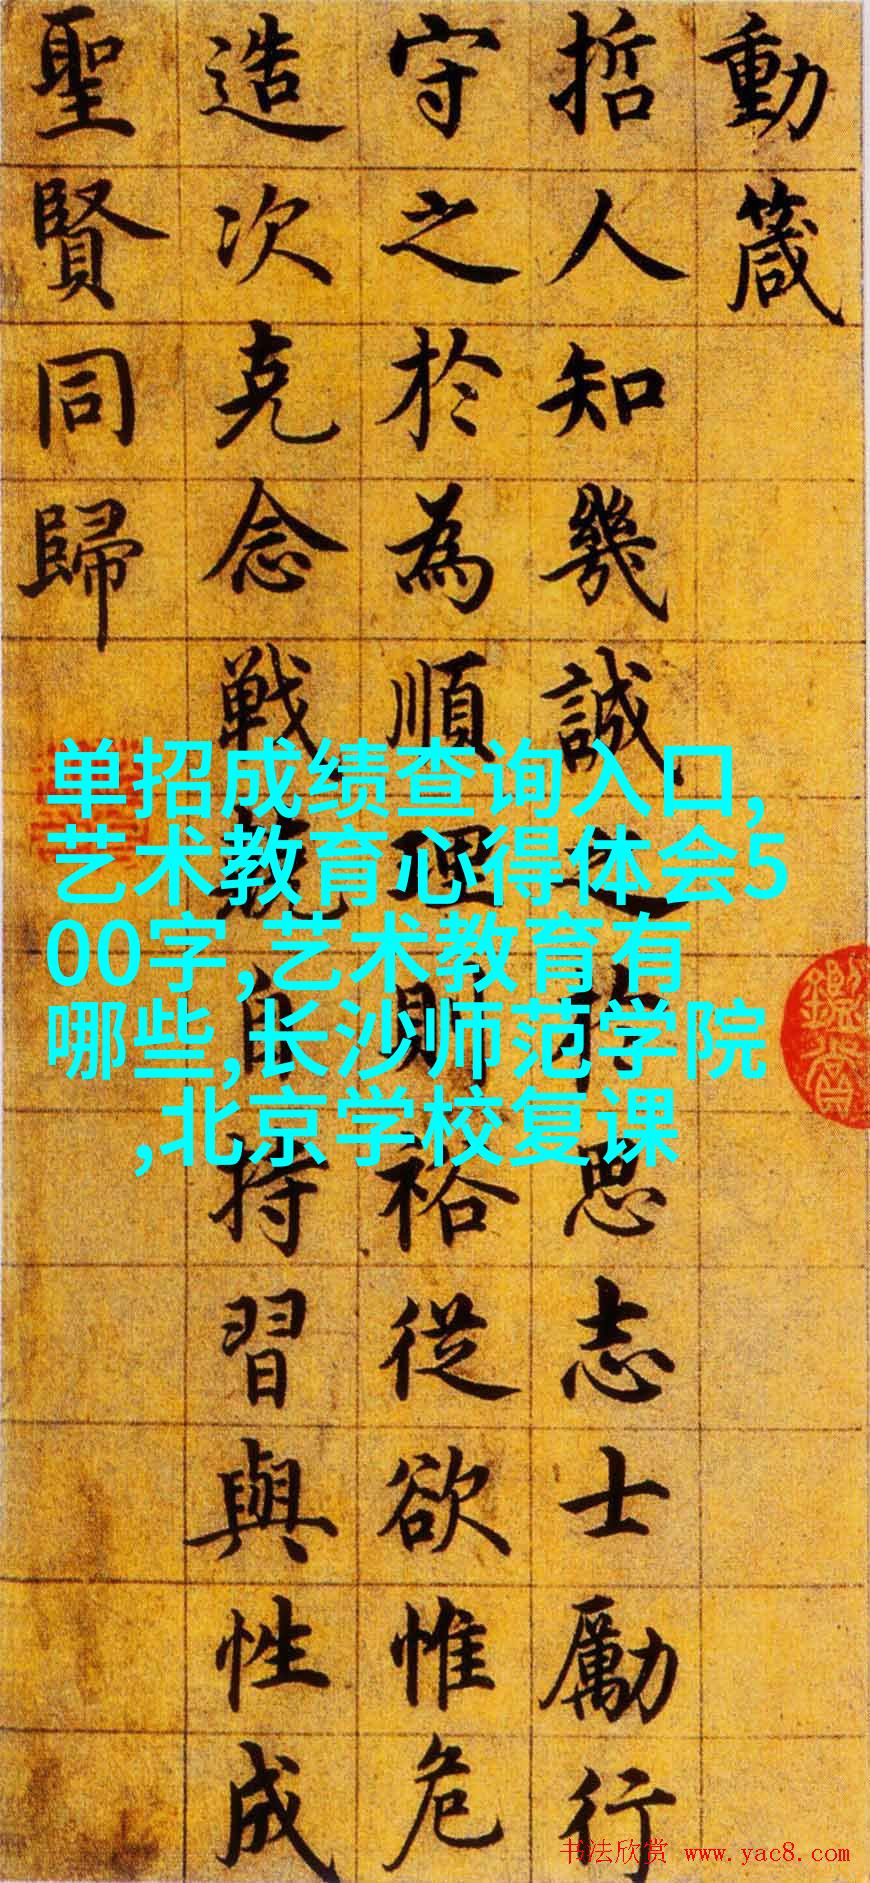 動箴
哲人知幾誠之於思志士勵行
守之於為順理則裕從欲惟危
造次克念戰兢自持習與性成
聖賢同歸
单招成绩查询入口,
艺术教育心得体会5
00字,艺术教育有
哪些,长沙师范学院
,北京学校复课
书法欣赏 www.yac8.com